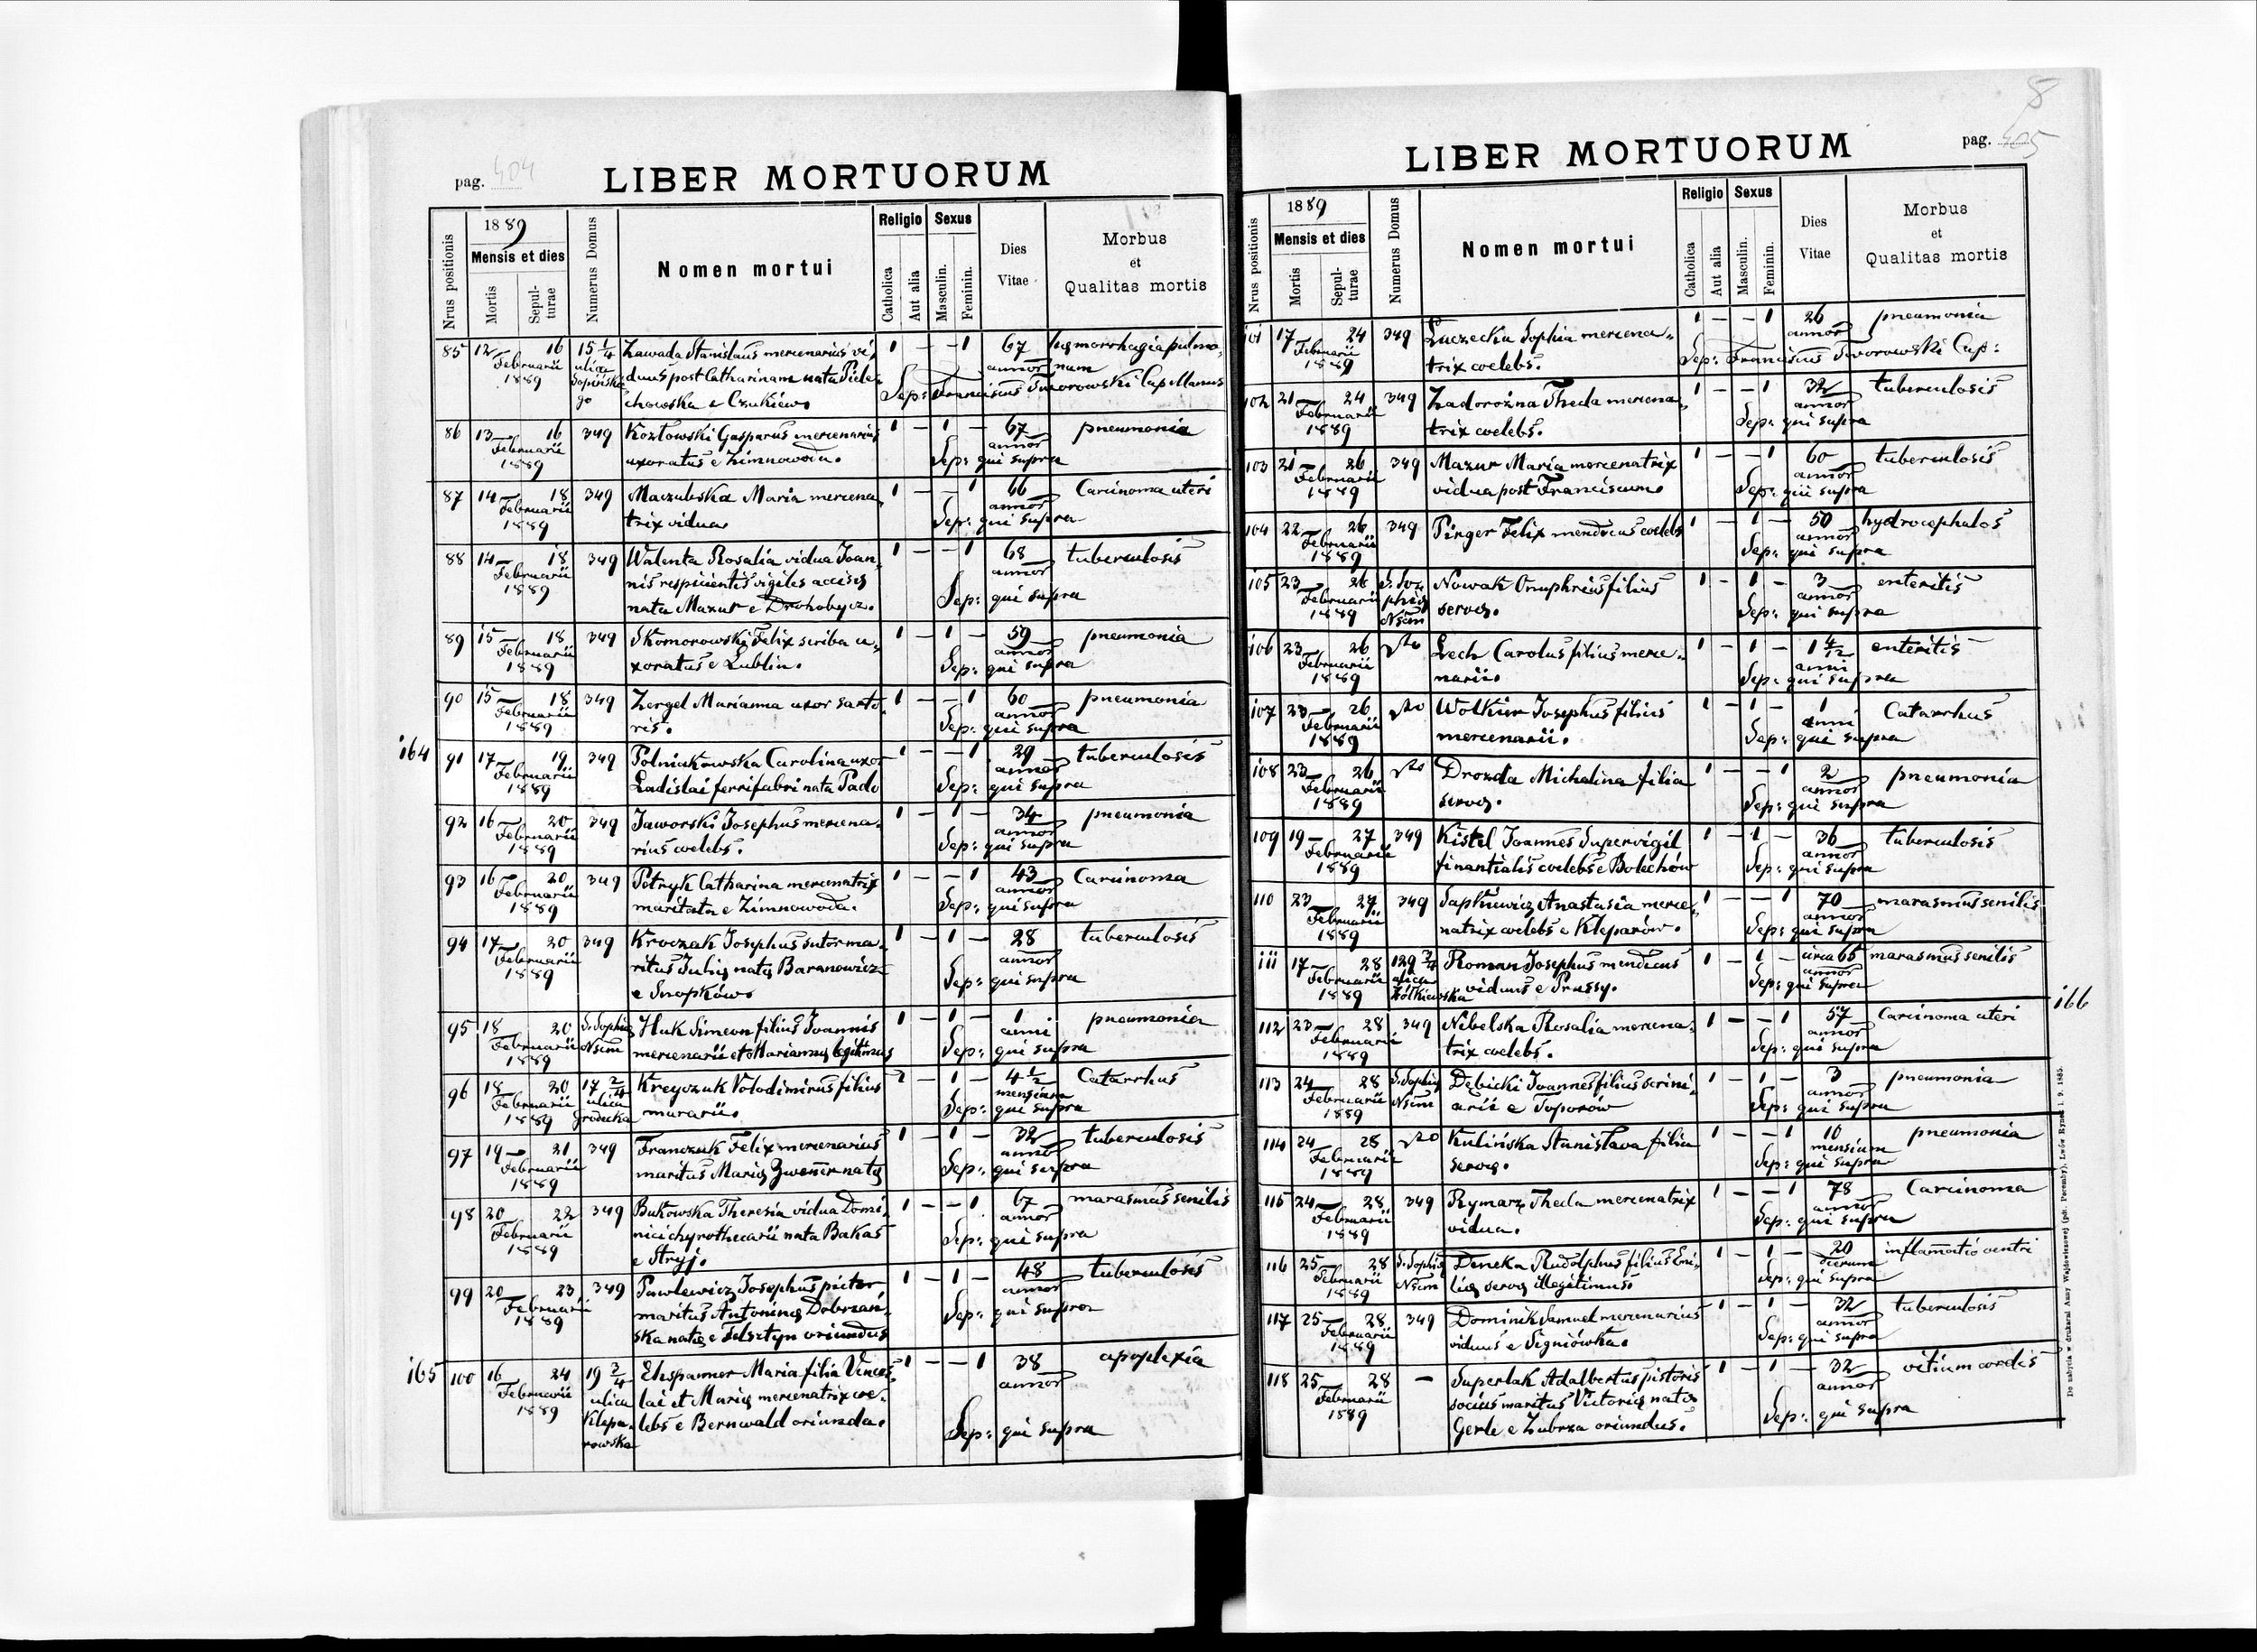 pag. 404
LIBER MORTUORUM
Nrus positionis
1889
Mensis et dies
Mortis
Sepulturae
Numerus Domus
Nomen mortui
Religio
Catholica
Aut alia
Sexus
Masculin.
Feminin.
Dies Vitae
Morbus et Qualitas mortis
85 12 16 15 1/4 Zawada Stanislaus mercenarius vi- 1 — — 1 67
Februarii ulica duus post Catharinam nata annor
1889 e Czukiew. Sep: Franciscus Sworowski Cap Manus
86 13 16 349 Kozłowski Gasparus mercenarius 1 — 1 — 67 pneumonia
Februarii uxoratus e Zimnowoda. annor
1889 Sep: qui supra
87 14 18 349 Maczubska Maria mercena- 1 — — 1 66 Carcinoma uteri
Februarii trix vidua. annor
1889 Sep: qui supra
88 14 18 349 Walenta Rosalia vidua Joan- 1 — — 1 68 tuberculosis
Februarii nis respicientis vigiles accisis annor
1889 nata Mazur e Drohobycz. Sep: qui supra
89 15 18 349 Skomorowski Felix scriba u- 1 — 1 — 59 pneumonia
Februarii xoratus e Lublin. annor
1889 Sep: qui supra
90 15 18 349 Zergel Marianna uxor sarto- 1 — — 1 60 pneumonia
Februarii ris. annor
1889 Sep: qui supra
164 91 17 19 349 Polniakowska Carolina uxor 1 — — 1 29 tuberculosis
Februarii Ladislai ferrifabri nata Pado annor
1889 Sep: qui supra
92 16 20 349 Jaworski Josephus mercena- 1 — 1 — 34 pneumonia
Februarii rius coelebs. annor
1889 Sep: qui supra
93 16 20 349 Potryk Catharina mercenatrix 1 — — 1 43 Carcinoma
Februarii maritata e Zimnowoda. annor
1889 Sep: qui supra
94 17 20 349 Kroczak Josephus sutor ma- 1 — 1 — 28 tuberculosis
Februarii ritus Julię natę Baranowicz annor
1889 e Snopków. Sep: qui supra
95 18 20 S. Sophię Huk Simeon filius Joannis 1 — 1 — 1 pneumonia
Februarii Nsum mercenarii et Mariannę legitimus anni
1889 Sep: qui supra
96 18 20 17 2/4 Kreyczuk Volodimirus filius — 1 — 4 1/2 Catarrhus
Februarii ulica murarii. mensium
1889 Grodecka Sep: qui supra
97 19 21 349 Franczuk Felix mercenarius 1 — 1 — 32 tuberculosis
Februarii maritus Marię Zwener natę annor
1889 Sep: qui supra
98 20 22 349 Bukowska Theresia vidua Domi- 1 — — 1 67 marasmus senilis
Februarii nici chyrothecarii nata Bakas annor
1889 e Stryj. Sep: qui supra
99 20 23 349 Pawlewicz Josephus pictor 1 — 1 — 48 tuberculosis
Februarii maritus Antoninę Dobrzań- annor
1889 ska natę e Felsztyn oriundus Sep: qui supra
165 100 16 24 19 3/4 Ehspanner Maria filia Vences- 1 — — 1 38 apoplexia
Februarii ulica lai et Marię mercenatrix coe- annor
1889 Klepa- lebs e Bernwald oriunda.
rowska Sep: qui supra
8
pag. 405
LIBER MORTUORUM
Nrus positionis
1889
Mensis et dies
Mortis
Sepulturae
Numerus Domus
Nomen mortui
Religio
Catholica
Aut alia
Sexus
Masculin.
Feminin.
Dies Vitae
Morbus et Qualitas mortis
101 17 24 349 Łuczecka Sophia mercena- 1 — — 1 26 pneumonia
Februarii annor
1889 trix coelebs. Sep: Franciscus Sworowski Cap:
102 21 24 349 Zadorożna Thecla mercena- 1 — — 1 32 tuberculosis
Februarii annor
1889 trix coelebs. Sep: qui supra
103 21 26 349 Mazur Maria mercenatrix 1 — — 1 60 tuberculosis
Februarii annor
1889 vidua post Franciscum. Sep: qui supra
104 22 26 349 Pinger Felix mendicus coelebs 1 — 1 — 50 hydrocephalos
Februarii annor
1889 Sep: qui supra
105 23 26 S. Sophię Nowak Onuphrius filius 1 — 1 — 3 enteritis
Februarii annor
1889 Nsum servę. Sep: qui supra
106 23 26 dto Lech Carolus filius merce- 1 — 1 — 1 4/12 enteritis
Februarii anni
1889 narii. Sep: qui supra
107 23 26 dto Wolkier Josephus filius 1 — 1 — 1 Catarrhus
Februarii anni
1889 mercenarii. Sep: qui supra
108 23 26 dto Drozda Michalina filia 1 — — 1 2 pneumonia
Februarii annor
1889 servę. Sep: qui supra
109 19 27 349 Kistel Joannes Supervigil 1 — 1 — 36 tuberculosis
Februarii annor
1889 finantialis coelebs e Bolechów Sep: qui supra
110 23 27 349 Anastasia merce- 1 — — 1 70 marasmus senilis
Februarii annor
1889 natrix coelebs e Kleparów. Sep: qui supra
111 17 28 129 3/4 Roman Josephus mendicus 1 — 1 — circa 65 marasmus senilis
Februarii ulica annor
1889 Żółkiewska viduus e Prussy. Sep: qui supra
166
112 23 28 349 Nebelska Rosalia mercena- 1 — — 1 57 Carcinoma uteri
Februarii annor
1889 trix coelebs. Sep: qui supra
113 24 28 S. Sophię Dębicki Joannes filius scrini- 1 — 1 — 3 pneumonia
Februarii Nsum annor
1889 arii e Toporów Sep: qui supra
114 24 28 dto Kulińska Stanislava filia 1 — — 1 10 pneumonia
Februarii mensium
1889 servę. Sep: qui supra
115 24 28 349 Rymarz Thecla mercenatrix 1 — — 1 78 Carcinoma
Februarii annor
1889 vidua. Sep: qui supra
116 25 28 S. Sophię Deneka Rudolphus filius Emi- 1 — 1 — 20 inflamatio ventri
Februarii Nsum dierum
1889 lię servę illegitimus Sep: qui supra
117 25 28 349 Dominik Samuel mercenarius 1 — 1 — 32 tuberculosis
Februarii annor
1889 viduus e Signiówka. Sep: qui supra
118 25 28 — Superlak Adalbertus pistoris 1 — 1 — 32 vitium cordis
Februarii socius maritus Victorię natę annor
1889 Gerle e Zubrza oriundus. Sep: qui supra